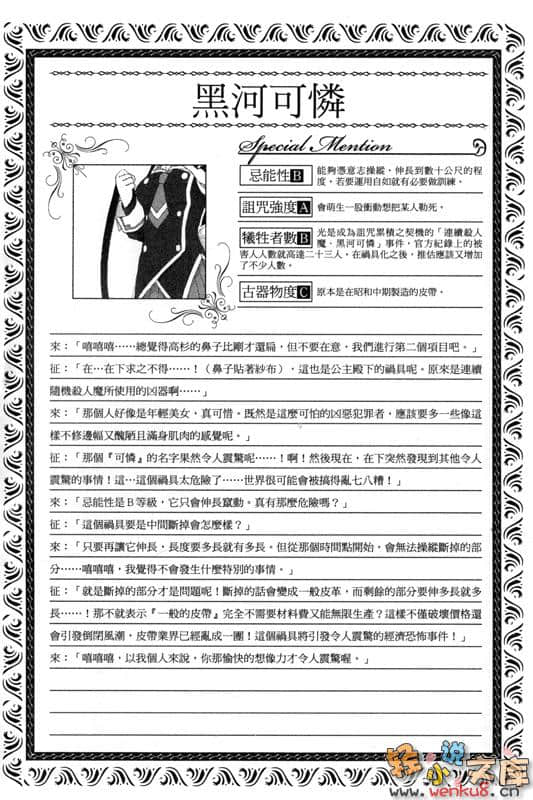 黑河可憐
Special Mention
忌能性B
能夠憑意志操縱，伸長到數十公尺的程
度。若要運用自如就有必要做訓練。
詛咒強度A
會萌生一股衝動想把某人勒死。
犧牲者數B
光是成為詛咒累積之契機的「連續殺人
魔．黑河可憐」事件，官方紀錄上的被
害人人數就高達二十三人。在禍具化之後，推估應該又增加
了不少人數。
古器物度C
原本是在昭和中期製造的皮帶。
來：「嘻嘻嘻……總覺得高杉的鼻子比剛才還扁，但不要在意。我們進行第二個項目吧。」
征：「在…在下求之不得……！（鼻子貼著紗布），這也是公主殿下的禍具呢。原來是連續
隨機殺人魔所使用的凶器啊……」
來：「那個人好像是年輕美女，真可惜。既然是這麼可怕的凶惡犯罪者，應該要多一些像這
樣不修邊幅又醜陋且滿身肌肉的感覺呢。」
征：「那個『可憐』的名字果然令人震驚呢……！啊！然後現在，在下突然發現到其他令人
震驚的事情！這…這個禍具太危險了……世界很可能會被搞得亂七八糟！」
來：「忌能性是B等級，它只會伸長竄動。真有那麼危險嗎？」
征：「這個禍具要是中間斷掉會怎麼樣？」
來：「只要再讓它伸長，長度要多長就有多長。但從那個時間點開始，會無法操縱斷掉的部
分……嘻嘻嘻，我覺得不會發生什麼特別的事情。」
征：「就是斷掉的部分才是問題呢！斷掉的話會變成一般皮革，而剩餘的部分要伸多長就多
長……！那不就表示『一般的皮帶』完全不需要材料費又能無限生產？這樣不僅破壞價格還
會引發倒閉風潮，皮帶業界已經亂成一團！這個禍具將引發令人震驚的經濟恐怖事件！」
來：「嘻嘻嘻，以我個人來說，你那愉快的想像力才令人震驚喔。」
轻小说文库
www.wenku8.cn